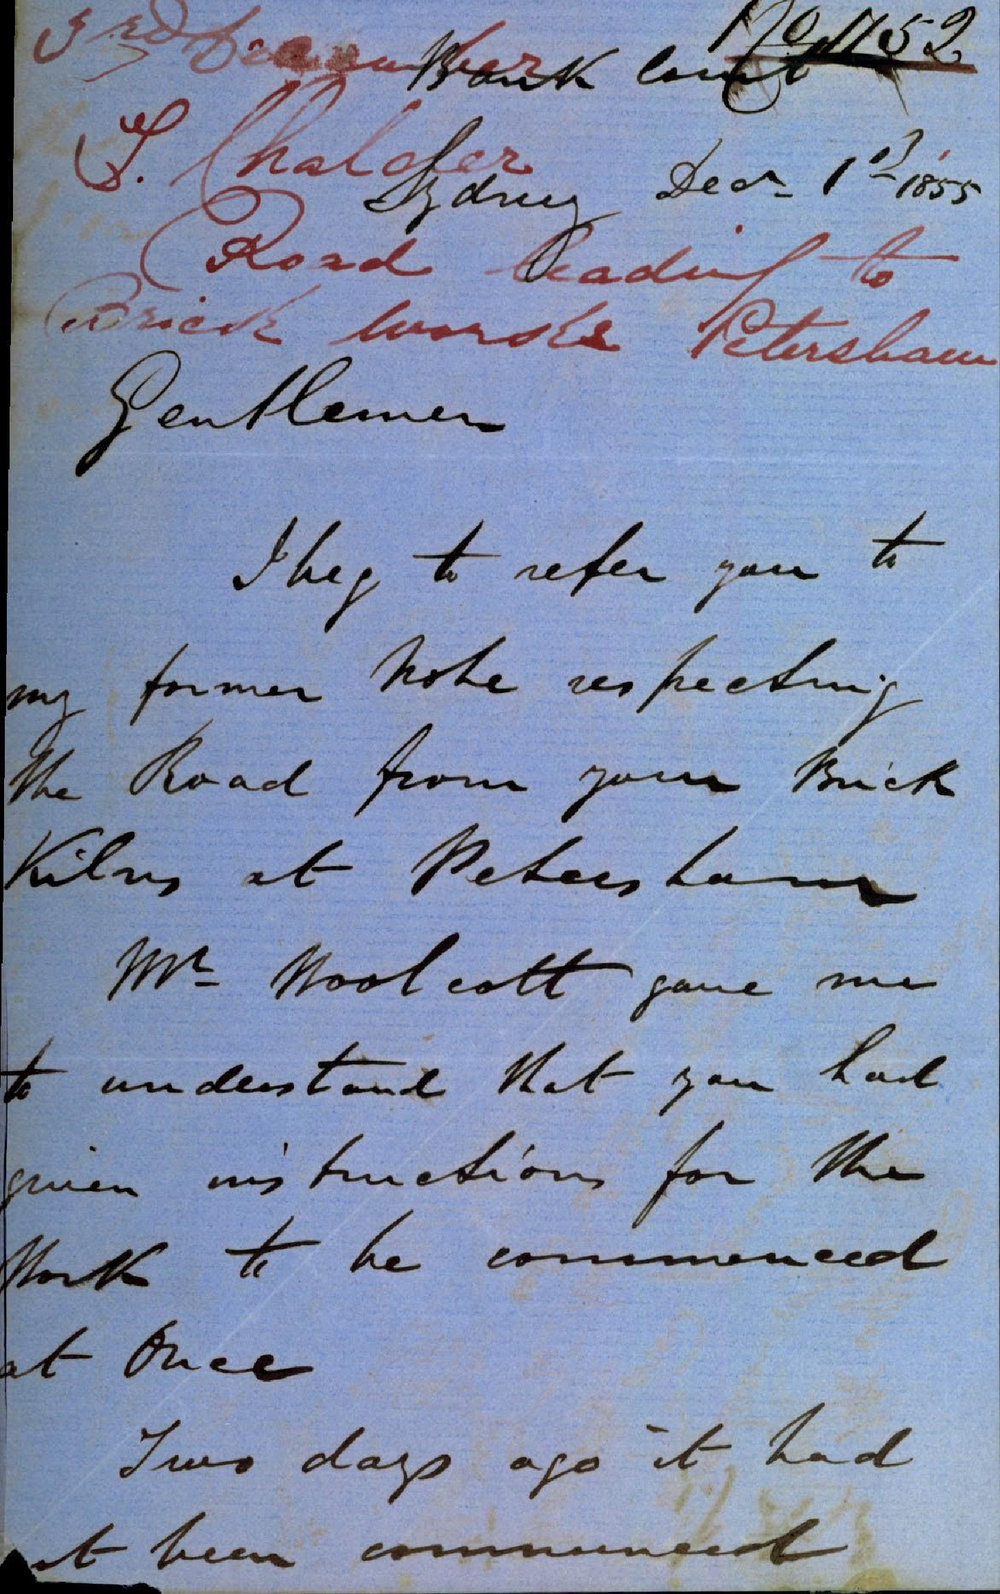 3rd December
No. 1752
Bank Court
T. Chalder
Sydney Decr 1st 1855
Road leading to
Brick works Petersham
Gentlemen
I beg to refer you to
my former Note respecting
the Road from your Brick
Kilns at Petersham
Mr Woolcott gave me
to understand that you had
given instructions for the
Work to be commenced
at Once
Two days ago it had
ot been commenced